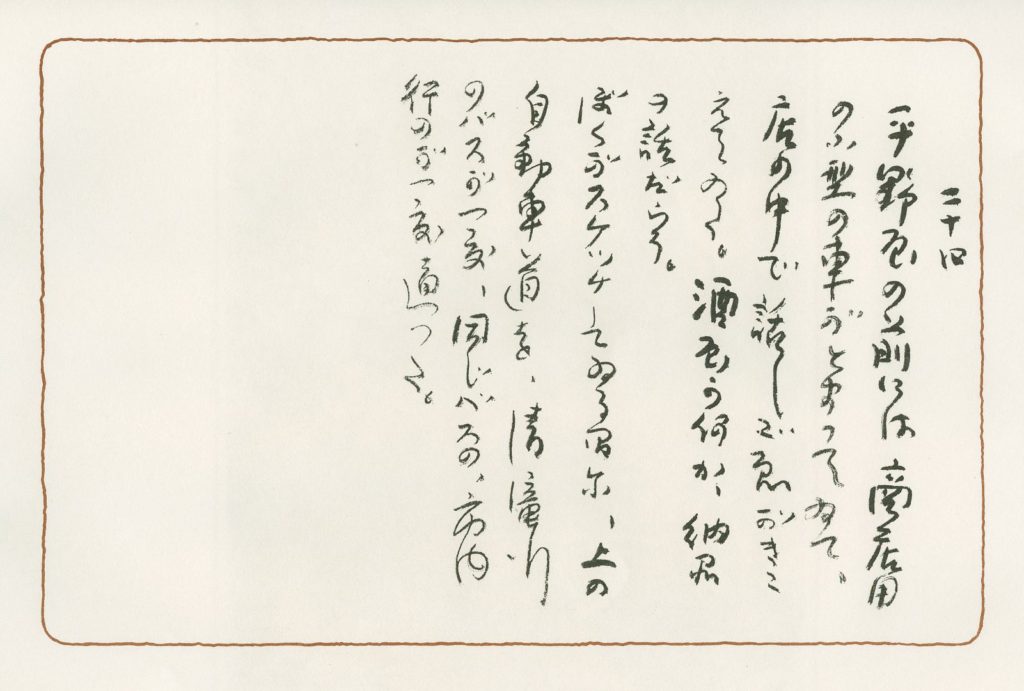 二十四
平野屋の前には商店用
の小型の車がとまつてゐて、
店の中で話し声がきこ
えてゐた。酒屋か何か、納品
の話だらう。
ぼくがスケッチしてゐる間に、上の
自動車道を、清滝行
のバスが一度、同じバスの、市内
行のが一度通つた。